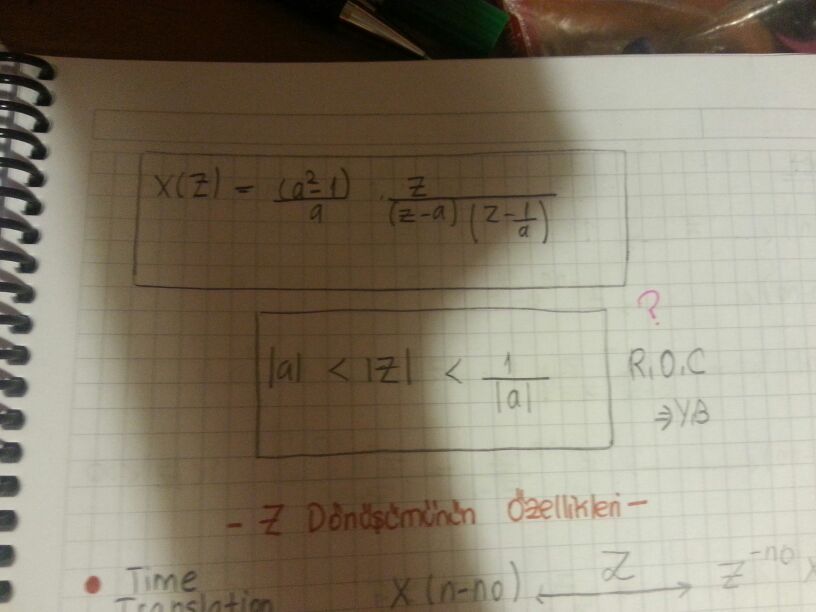 X(Z) = (a²-1)/a · z/((z-a)(z-1/a))
|a| < |Z| < 1/|a|
?
R.O.C
⇒ YB
- Z Dönüşümünün Özellikleri -
• Time
Translation
X(n-no) ⟷ Z z^-no X